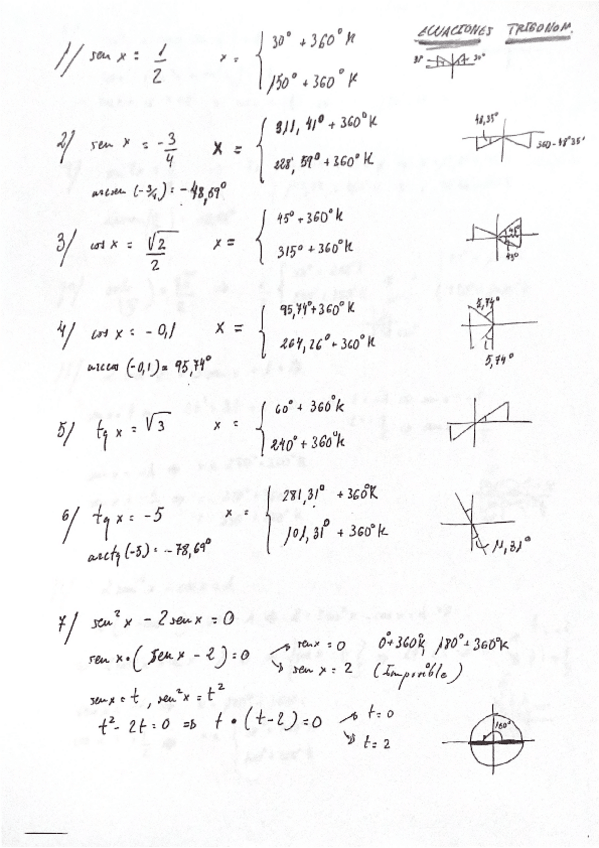 ECUACIONES TRIGONOM.
1/ sen x = 1/2 x = { 30° + 360°k
150° + 360°k
30° 30°
2/ sen x = -3/4 x = { 311,41° + 360°k
228,59° + 360°k
arcsen (-3/4) = -48,69°
48,35°
360-48°35'
3/ cos x = √2/2 x = { 45° + 360°k
315° + 360°k
45°
45°
4/ cos x = -0,1 x = { 95,74° + 360°k
264,26° + 360°k
arccos (-0,1) = 95,74°
5,74°
5,74°
5/ tg x = √3 x = { 60° + 360°k
240° + 360°k
6/ tg x = -5 x = { 281,31° + 360°k
101,31° + 360°k
arctg (-5) = -78,69°
11,31°
7/ sen² x - 2 sen x = 0
sen x · (sen x - 2) = 0 → sen x = 0 0° + 360°k, 180° + 360°k
→ sen x = 2 (Imposible)
sen x = t, sen² x = t²
t² - 2t = 0 ⇒ t · (t - 2) = 0 → t = 0
→ t = 2
180°